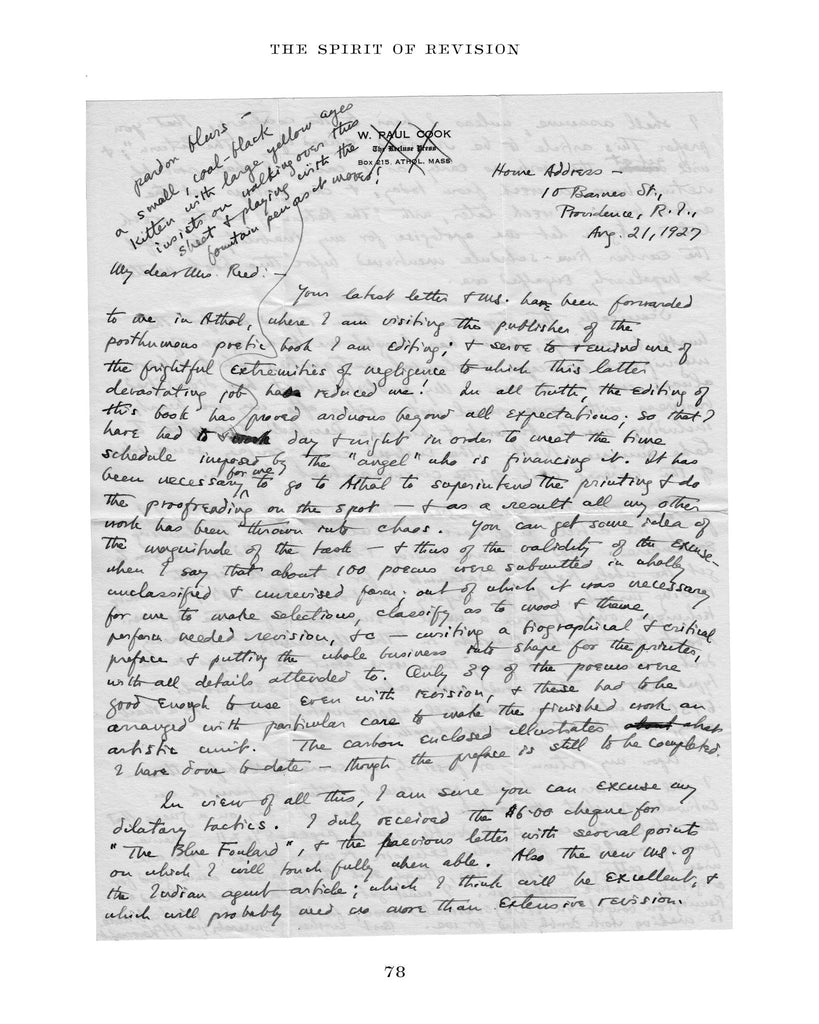 THE SPIRIT OF REVISION
pardon blurs —
a small, coal-black
kitten with large yellow eyes
insists on walking over this
sheet & playing with the
fountain pen as it moves!
W. PAUL COOK
The Recluse Press
BOX 215, ATHOL, MASS
Home Address —
10 Barnes St.,
Providence, R.I.,
Aug. 21, 1927
My dear Mrs. Reed: —
Your latest letter & MS. have been forwarded
to me in Athol, where I am visiting the publisher of the
posthumous poetic book I am editing; & serve to remind me of
the frightful extremities of negligence to which this latter
devastating job has reduced me! In all truth, the editing of
this book has proved arduous beyond all expectations; so that I
have had to work day & night in order to meet the time
schedule imposed by the "angel" who is financing it. It has
been necessary for me to go to Athol to superintend the printing & do
the proofreading on the spot — & as a result all my other
work has been thrown into chaos. You can get some idea of
the magnitude of the task — & thus of the validity of the excuse —
when I say that about 100 poems were submitted in wholly
unclassified & unrevised form; out of which it was necessary
for me to make selections, classify as to mood & theme,
perform needed revision, &c — writing a biographical & critical
preface & putting the whole business into shape for the printer,
with all details attended to. Only 39 of the poems were
good enough to use even with revision, & these had to be
arranged with particular care to make the finished work an
artistic unit. The carbon enclosed illustrates about what
I have done to date — though the preface is still to be completed.
In view of all this, I am sure you can excuse my
dilatory tactics. I duly received the $6.00 cheque for
"The Blue Foulard", & the previous letter with several points
on which I will touch fully when able. Also the new MS. of
the Indian agent article; which I think will be excellent, &
which will probably need no more than extensive revision.
78